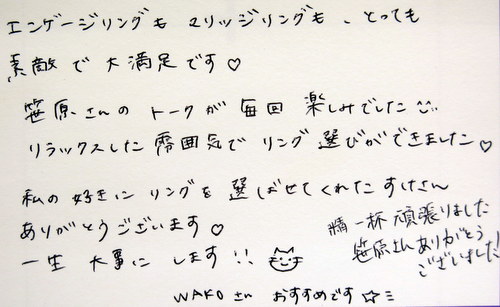 エンゲージリングも マリッジリングも、とっても
素敵で大満足です♡
笹原さんの トークが 毎回 楽しみでした
リラックスした 雰囲気で リング 選びができました♡
私の好きに リングを 選ばせてくれた すけさん
ありがとうございます♡
一生 大事に します!!
精一杯頑張りました
笹原さんありがとう
ございました!
WAKOさん おすすめです☆ミ